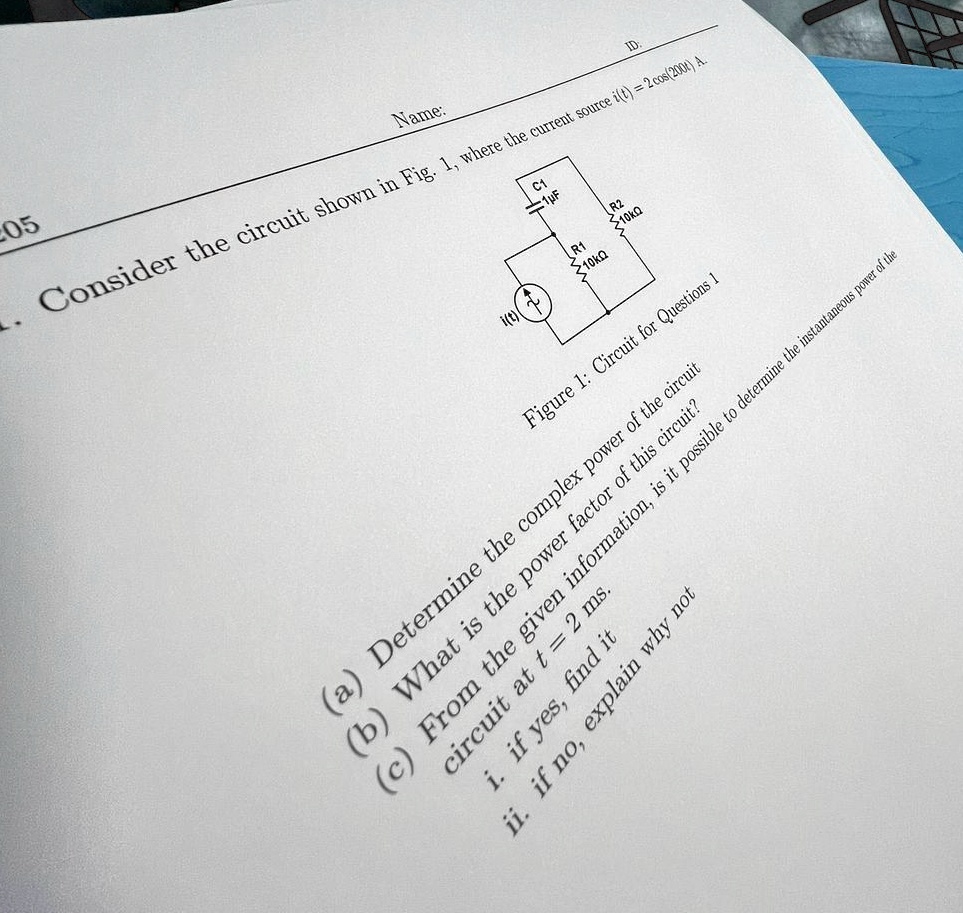 ID:
Name:
205
1. Consider the circuit shown in Fig. 1, where the current source i(t) = 2 cos(200t) A.
C1
1μF
R2
10kΩ
R1
10kΩ
i(t)
Figure 1: Circuit for Questions 1
(a) Determine the complex power of the circuit
(b) What is the power factor of this circuit?
(c) From the given information, is it possible to determine the instantaneous power of the
circuit at t = 2 ms.
i. if yes, find it
ii. if no, explain why not